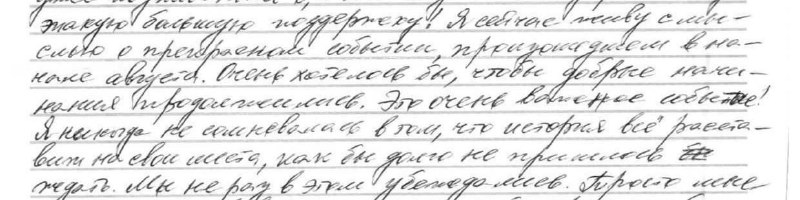 такую большую поддержку! Я сейчас живу с мы-
слью о прекрасном событии, произошедшем в на-
чале августа. Очень хотелось бы, чтобы добрые начи-
нания продолжились. Это очень важное событие!
Я никогда не сомневалась в том, что история всё расста-
вит на свои места, как бы долго не пришлось
ждать. Мы не раз в этом убеждались. Просто мне